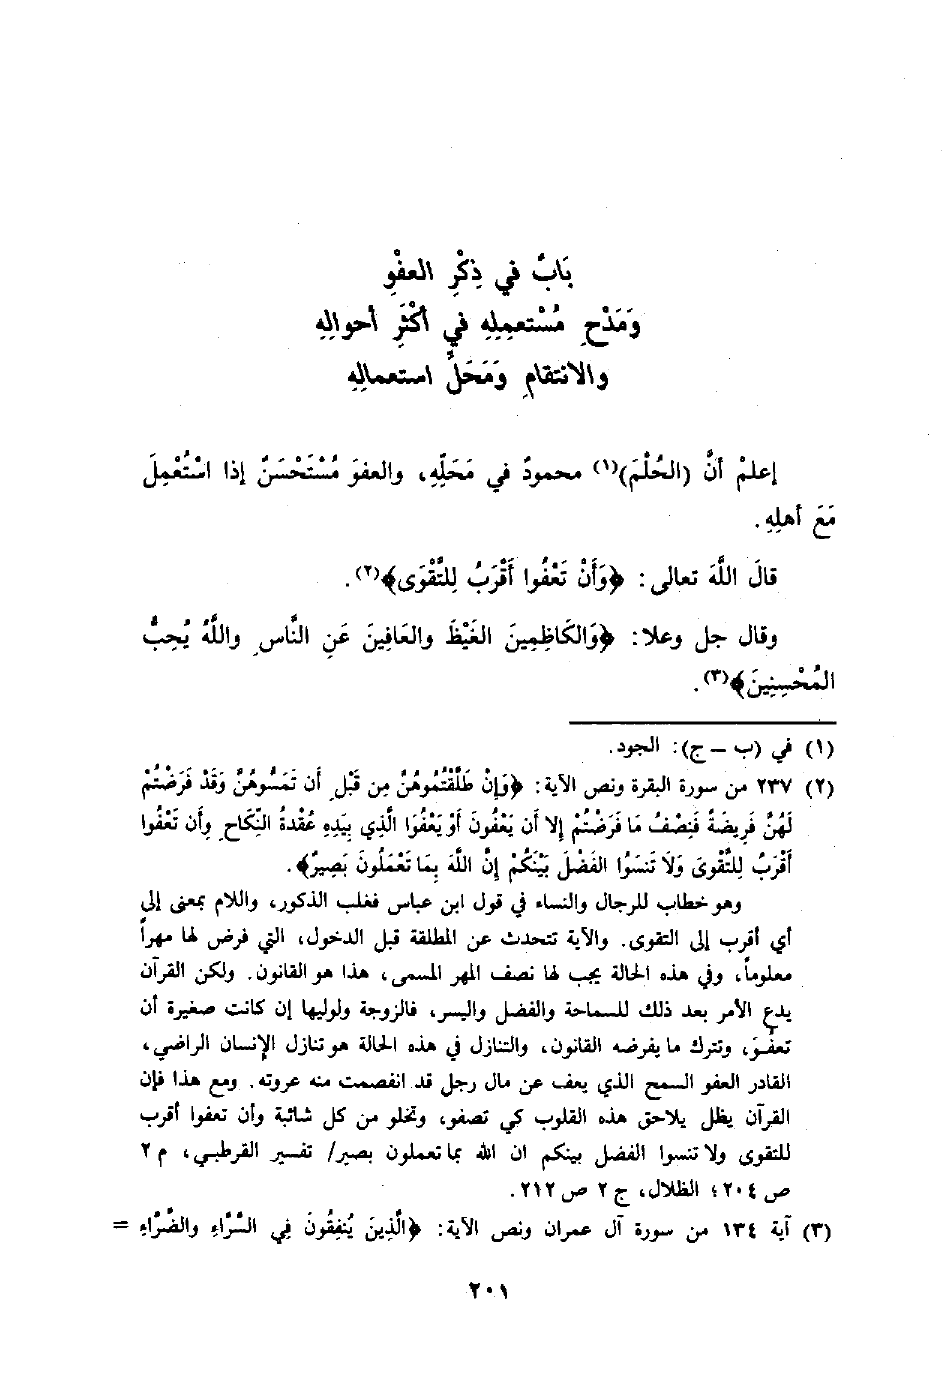 بَابٌ في ذِكْرِ العفْوِ
وَمَدْحِ مُسْتعمِلِهِ في أكْثَرِ أحوالِهِ
والانتقامِ وَمَحَلِّ استعمالِهِ
إعلمْ أنَّ (الحُلْمَ)(١) محمودٌ في مَحَلِّهِ، والعفوَ مُسْتَحْسَنٌ إذا اسْتُعْمِلَ
مَعَ أهلِهِ.
قالَ اللَّهَ تعالى: ﴿وَأَنْ تَعْفُوا أَقْرَبُ لِلتَّقْوَى﴾(٢).
وقال جل وعلا: ﴿وَالكَاظِمِينَ الغَيْظَ والعَافِينَ عَنِ النَّاسِ واللَّهُ يُحِبُّ
المُحْسِنِينَ﴾(٣).
(١) في (ب – ج): الجود.
(٢) ٢٣٧ من سورة البقرة ونص الآية: ﴿وَإِنْ طَلَّقْتُمُوهُنَّ مِن قَبْلِ أَن تَمَسُّوهُنَّ وَقَدْ فَرَضْتُمْ
لَهُنَّ فَرِيضَةً فَنِصْفُ مَا فَرَضْتُمْ إلا أَن يَعْفُونَ أَوْ يَعْفُوَا الَّذِي بِيَدِهِ عُقْدةُ النِّكَاحِ وأَن تَعْفُوا
أَقْرَبُ لِلتَّقْوىَ وَلَا تَنسَوُا الفَضْلَ بَيْنَكُمْ إِنَّ اللَّهَ بِمَا تَعْمَلُونَ بَصِيرٌ﴾.
وهو خطاب للرجال والنساء في قول ابن عباس فغلب الذكور، واللام بمعنى إلى
أي أقرب إلى التقوى. والآية تتحدث عن المطلقة قبل الدخول، التي فرض لها مهراً
معلوماً، وفي هذه الحالة يجب لها نصف المهر المسمى، هذا هو القانون. ولكن القرآن
يدع الأمر بعد ذلك للسماحة والفضل واليسر، فالزوجة ولوليها إن كانت صغيرة أن
تعفُوَ، وتترك ما يفرضه القانون، والتنازل في هذه الحالة هو تنازل الإنسان الراضي،
القادر العفو السمح الذي يعف عن مال رجل قد انفصمت منه عروته. ومع هذا فإن
القرآن يظل يلاحق هذه القلوب كي تصفو، وتخلو من كل شائبة وأن تعفوا أقرب
للتقوى ولا تنسوا الفضل بينكم ان الله بما تعملون بصير/ تفسير القرطبي، م ٢
ص ٢٠٤؛ الظلال، ج ٢ ص ٢١٢.
(٣) آية ١٣٤ من سورة آل عمران ونص الآية: ﴿الَّذِينَ يُنفِقُونَ فِي السَّرَّاءِ والضَّرَّاءِ =
٢٠١